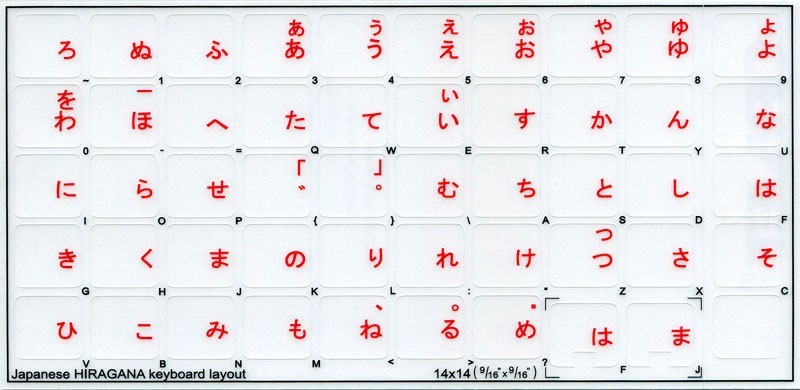 ぁ ぅ ぇ ぉ ゃ ゅ ょ
ろ ぬ ふ あ う え お や ゆ よ
~ 1 2 3 4 5 6 7 8 9
を ー ぃ
わ ほ へ た て い す か ん な
0 - = Q W E R T Y U
「 」
に ら せ ゛ ゜ む ち と し は
I O P { } \ A S D F
っ
き く ま の り れ け つ さ そ
G H J K L : " Z X C
、 。 ・
ひ こ み も ね る め は ま
V B N M < > ? F J
Japanese HIRAGANA keyboard layout 14x14 (9/16"x9/16")